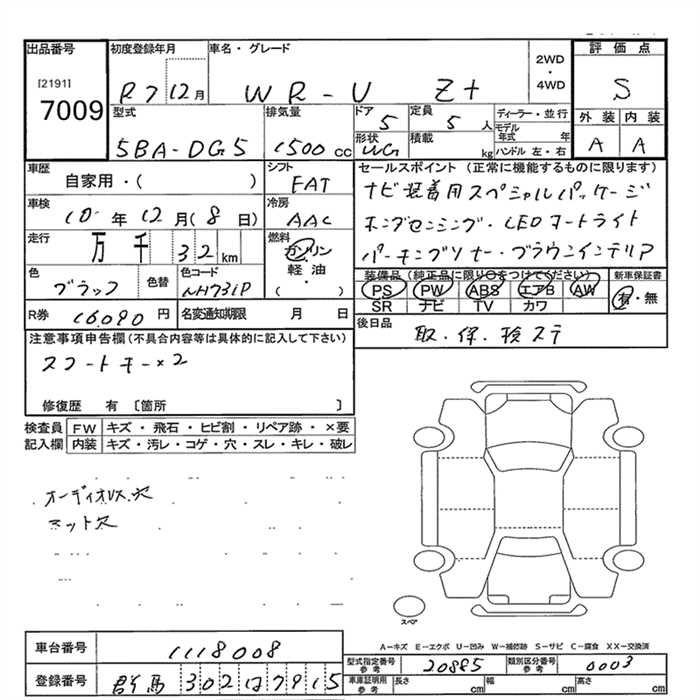 出品番号 初度登録年月 車名・グレード 2WD・4WD 評価点
[2191]
7009
R7 12月 WR-V Z+ S
型式 排気量 ドア 5 定員 5人 ディーラー・並行 外装 内装
5BA-DG5 1500cc 形状 WG 積載 kg モデル年式 年 ハンドル 左・右 A A
車歴 自家用・( ) シフト FAT セールスポイント (正常に機能するものに限ります)
ナビ装着用スペシャルパッケージ
車検 10年 12月 (8日) 冷房 AAC ホンダセンシング・LEDヘッドライト
走行 万 千 32 km 燃料 ガソリン 軽油 ( ) パーキングソナー・ブラウンインテリア
色 ブラック 色替 色コード NH731P
装備品 (純正品に限り○をつけてください) 新車保証書
PS PW ABS エアB AW 有・無
SR ナビ TV カワ
R券 16,090円 名変通知期限 月 日
後日品 取・保・検ステ
注意事項申告欄 (不具合内容等は具体的に記入して下さい)
スマートキー×2
修復歴 有 〔箇所 〕
検査員記入欄 FW キズ・飛石・ヒビ割・リペア跡・×要
内装 キズ・汚レ・コゲ・穴・スレ・キレ・破レ
オーディオレス欠
マット欠
スペア
A-キズ E-エクボ U-凹み W-補修跡 S-サビ C-腐食 XX-交換済
車台番号 1118008
型式指定番号 参考 20885 類別区分番号 参考 0003
登録番号 群馬 302
車庫証明用 参考 長さ cm 幅 cm 高さ cm